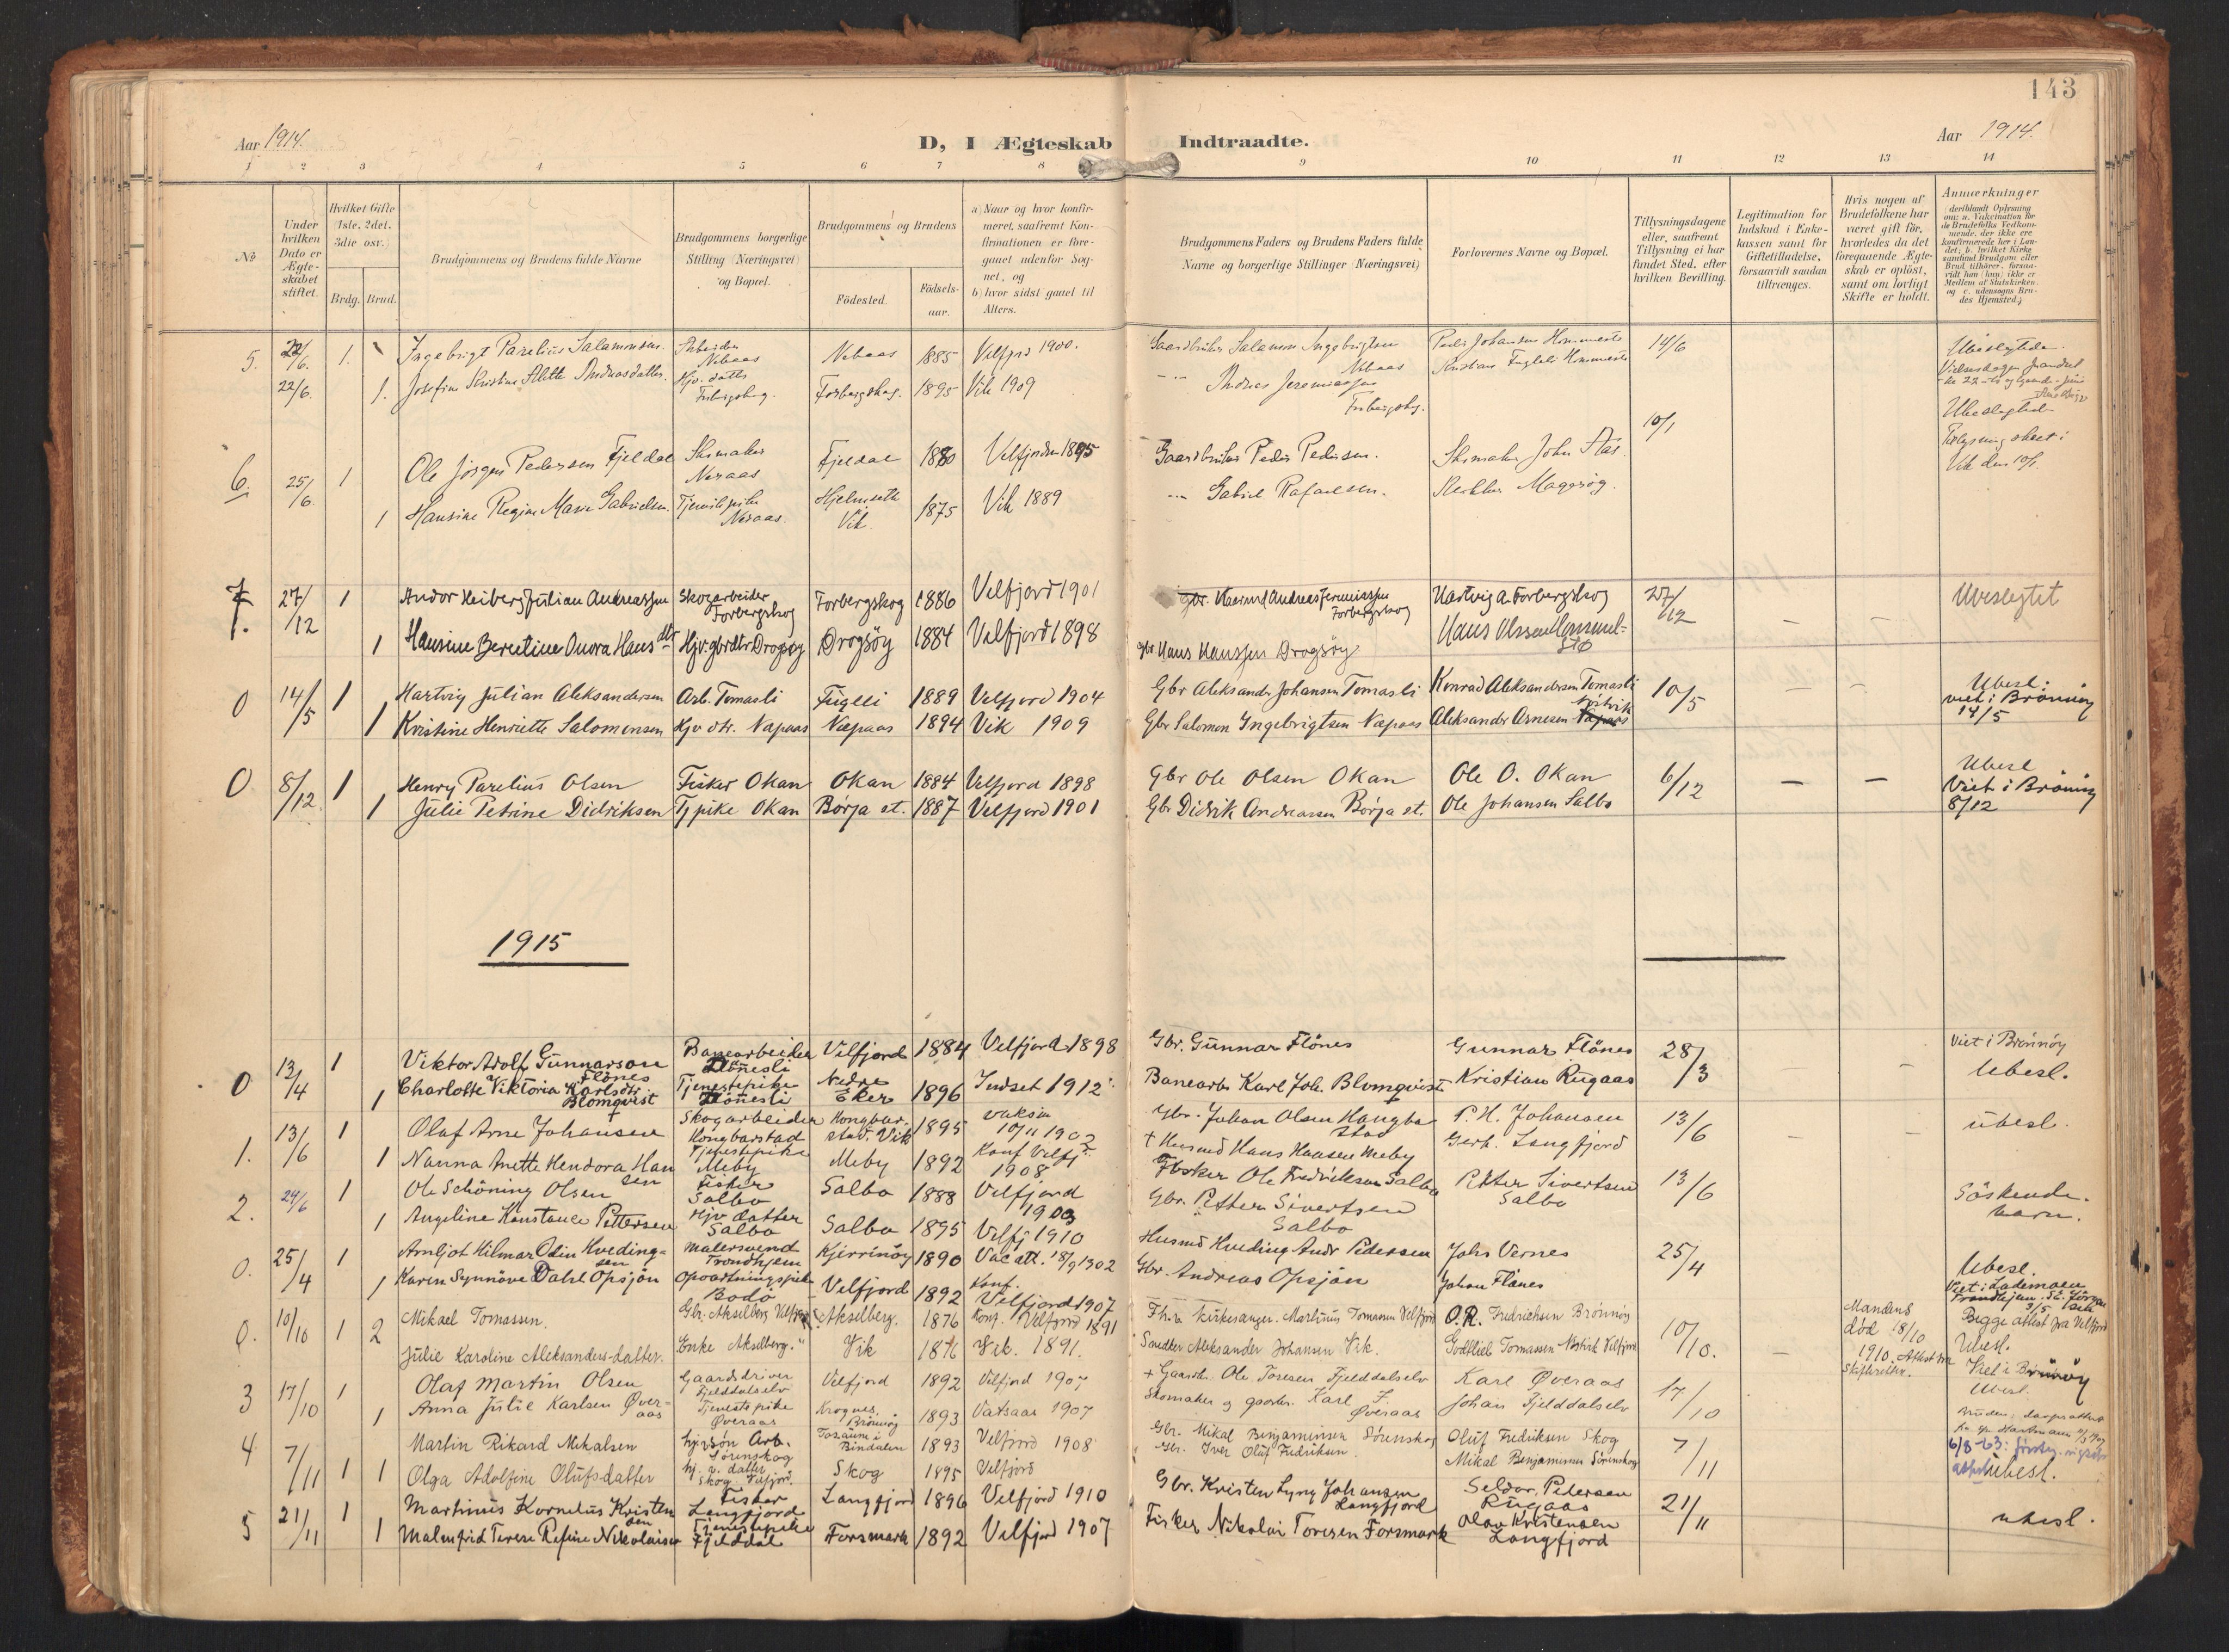 143
Aar 1914.
D, I Ægteskab Indtraadte.
Aar 1914.
1 2 3 4 5 6 7 8 9 10 11 12 13 14
No
Under hvilken Dato er Ægteskabet stiftet.
Hvilket Gifte 1ste, 2det, 3die osv.
Brdg. Brud.
Brudgommens og Brudens fulde Navne
Brudgommens borgerlige Stilling (Næringsvei) og Bopæl.
Brudgommens og Brudens
Fødested.
Fødselsaar.
a) Naar og hvor konfirmeret, saafremt Konfirmationen er foregaaet udenfor Sognet, og
b) hvor sidst gaaet til Alters.
Brudgommens Faders og Brudens Faders fulde Navne og borgerlige Stillinger (Næringsvei)
Forlovernes Navne og Bopæl.
Tillysningsdagene eller, saafremt Tillysning ei har fundet Sted, efter hvilken Bevilling.
Legitimation for Indskud i Enkekassen samt for Giftetilladelse, forsaavidt saadan tiltrænges.
Hvis nogen af Brudefolkene har været gift før, hvorledes da det foregaaende Ægteskab er opløst, samt om lovligt Skifte er holdt.
Anmærkninger
5. 22/6. 1. Ingebrigt Parelius Salamonsen. Arbeider 1885 Velfjord 1900. Gaardbruker Salamon Ingebrigtsen Peder Johansen 14/6
22/6. 1. Josefine Kristine Alette Andreasdatter. Hjv. datter Forbergskog. Forbergskog. 1895 Vik 1909 Andreas Jeremiassen Forbergskog.
10/1
6. 25/6 1 Ole Jörgen Pedersen Fjeldal Skomaker Fjeldal 1880 Velfjorden 1895 Gaardbruker Peder Pedersen. Skomaker John Aas.
1 Hansine Regine Marie Gabrielsen. Tjenestepike Vik. 1875 Vik 1889 Gabriel Rafaelsen.
Vik den 10/1.
7. 27/12 1 Andor Heiberg Julian Andreassen Skogarbeider Forbergskog Forbergskog 1886 Velfjord 1901 Andreas Jermiassen Forbergskog Hartvig A. Forbergskog 27/12 Ubeslegtet
1 Hansine Berentine Onora Hansdtr Hjv. gbrdtr Drogsöy Drogsöy 1884 Velfjord 1898 Gbr Hans Hanssen Drogsöy
0 14/5 1 Hartvig Julian Aleksandersen Arb. Tomasli Fuglli 1889 Velfjord 1904 Gbr Aleksander Johansen Tomasli Konrad Aleksandersen Tomasli 10/5 – – Ubesl.
1 Kristine Henriette Salomonsen Hjv dtr. Næpaas Næpaas 1894 Vik 1909 Gbr Salomon Ingebrigtsen Næpaas Aleksander Arnesen viet i Brönnöy 14/5
0 8/12 1 Henry Parelius Olsen Fisker Okan Okan 1884 Velfjord 1898 Gbr Ole Olsen Okan Ole O. Okan 6/12 – – Ubesl
1 Julie Petrine Didriksen Tj pike Okan Børja st. 1887 Velfjord 1901 Gbr Didrik Andreassen Børja st. Ole Johansen Salbo Viet i Brönnöy 8/12
1915
0 13/4 1 Viktor Adolf Gunnarson Flönes Banearbeider Velfjord 1884 Velfjord 1898 Gbr. Gunnar Flönes Gunnar Flönes 28/3 Viet i Brönnöy
1 Charlotte Viktoria Karlsdtr. Blomqvist Tjenestepike Nedre Eker 1896 Indset 1912 Banearb. Karl Joh. Blomqvist Kristian Rugaas Ubesl.
1. 13/6 1 Olaf Arne Johansen Skogarbeider Hongbarstad Hongbarstad. Vik 1895 vaksin 10/11 1902 Gbr. Johan Olsen P. H. Johansen 13/6 ubesl.
1 Nanna Anette Hendora Hansen Tjenestepike Meby Meby 1892 Konf Velfj. 1908 + Husmd Hans Hansen Meby Gerh. Langfjord
2. 24/6 1 Ole Schöning Olsen Fisker Salbo Salbo 1888 Velfjord 1903 Fisker Ole Fredriksen Salbo Petter Sivertsen Salbo 13/6 Söskende-
1 Angeline Konstance Pettersen Hjv datter Salbo Salbo 1895 Velfj 1910 Gbr. Petter Sivertsen Salbo barn.
0. 25/4 1 Arnljot Hilmar Odin Hvedingsen Malersvend Trondhjem 1890 Vac att. 18/9 1902 Husmd Hveding Andr Pedersen Johs Vernes 25/4 Ubesl.
1 Karen Synnöve Dahl Opsjön Opvartningspike Bodö Velfjord 1892 Konf. Velfjord 1907 Gbr. Andreas Opsjön Johan Flönes Viet i Lademoen
0. 10/10 1 2 Mikael Tomassen. Gbr. Akselberg Velfjord Akselberg. 1876 Konf. Velfjord 1891 Fh.v. kirkesanger. Martinus Tomassen Velfjord O.R. Fredriksen Brönnöy 10/10. – Mandens död 18/10 1910. Begge attest fra Velfjord
Julie Karoline Aleksanders-datter. Enke Akselberg." Vik 1876 Vik. 1891. Aleksander Johansen Vik. Godtlieb Tomassen Velfjord Ubesl. Viet i Brönnöy
3 17/10 1 Olaf Martin Olsen Gaardsdriver Fjelddalselv Velfjord 1892 Velfjord 1907 + Gaardbr. Ole Toresen Fjelddalselv Karl Øveraas 17/10 Ubesl.
1 Anna Julie Karlsen Øveraas Tjenestepike Øveraas Brönnöy 1893 Vatsaas 1907 Skomaker og gaardbr. Karl J. Øveraas Johan Fjelddalselv
4 7/11 1 Martin Rikard Mikalsen hjv sön Arb. Sörenskog Bindalen 1893 Velfjord 1908 Gbr. Mikal Benjaminsen Sörenskog Oluf Fredriksen Skog 7/11
1 Olga Adolfine Olufsdatter hj. v. datter Skog Velfjord. Skog 1895 Velfjord Gbr. Iver Oluf Fredriksen. Mikal Benjaminsen Sörenskog Ubesl.
5 21/11 1 Martinus Kornelius Kristensen Fisker Langfjord Langfjord 1896 Velfjord 1910 Gbr. Kristen Lyng Johansen Langfjord Seldor Pedersen Rugaas 21/11
1 Malmfrid Terese Refine Nikolaisen Tjenestepike Fjelddal Forsmark 1892 Velfjord 1907 Fisker Nikolai Toresen Forsmark Olav Kristensen Langfjord ubesl.